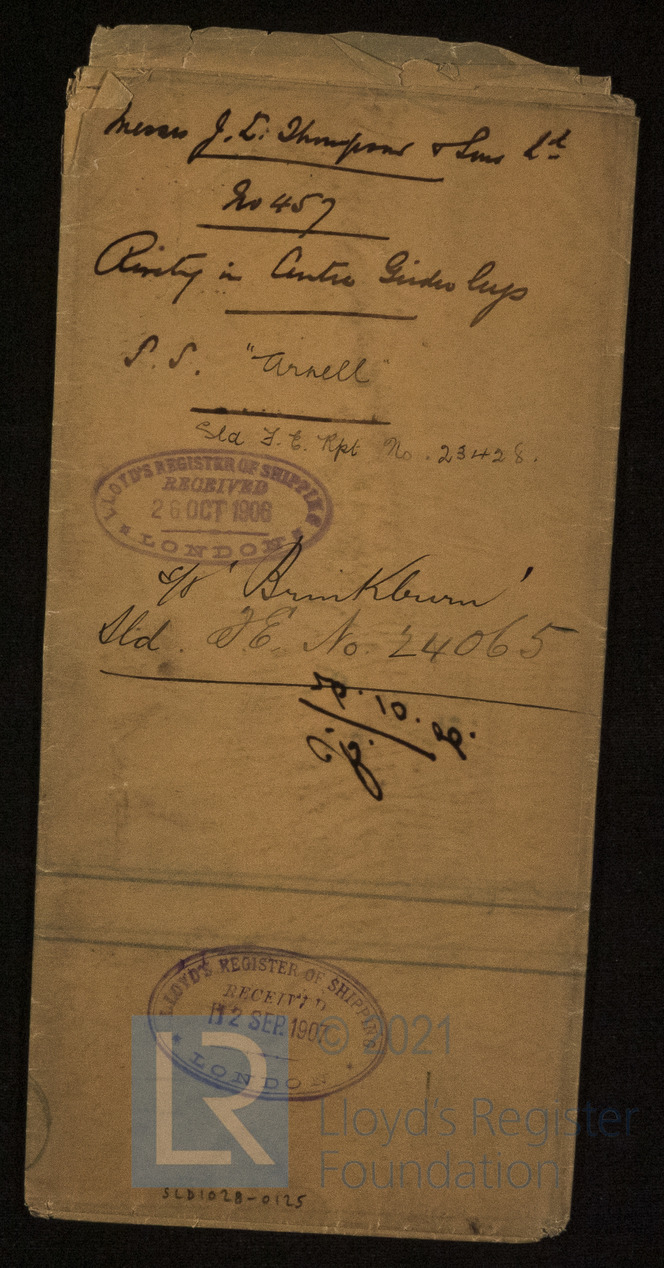 Messrs J. L. Thompson & Sons Ld
No 457
Riveting in Centre Girder Lugs
S. S. "Arnell"
Sld F.E. Rpt No. 23428.
LLOYD'S REGISTER OF SHIPPING
RECEIVED
26 OCT 1906
LONDON
s/s 'Brinkburn'
Sld. F.E. No. 24065
LLOYD'S REGISTER OF SHIPPING
RECEIVED
12 SEP 1907
LONDON
© 2021
LR
Lloyd's Register
Foundation
SLD1028-0125